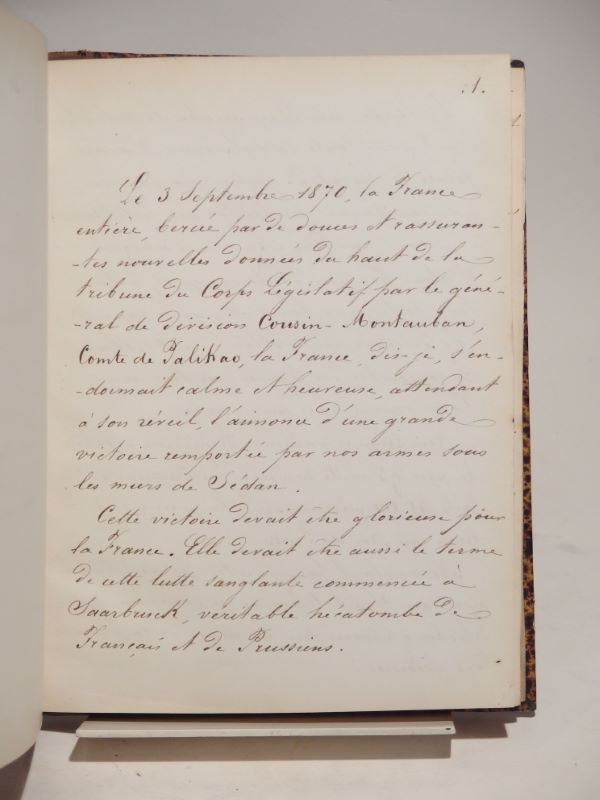 .1.
Le 3 Septembre 1870, la France
entière, bercée par de douces et rassuran-
-tes nouvelles données du haut de la
tribune du Corps Législatif par le géné-
-ral de division Cousin-Montauban,
Comte de Palikao, la France, dis-je, s'en-
-dormait calme et heureuse, attendant
à son réveil, l'annonce d'une grande
victoire remportée par nos armes sous
les murs de Sédan.
Cette victoire devait être glorieuse pour
la France. Elle devait être aussi le terme
de cette lutte sanglante commencée à
Saarbruck, véritable hécatombe de
Français et de Prussiens.